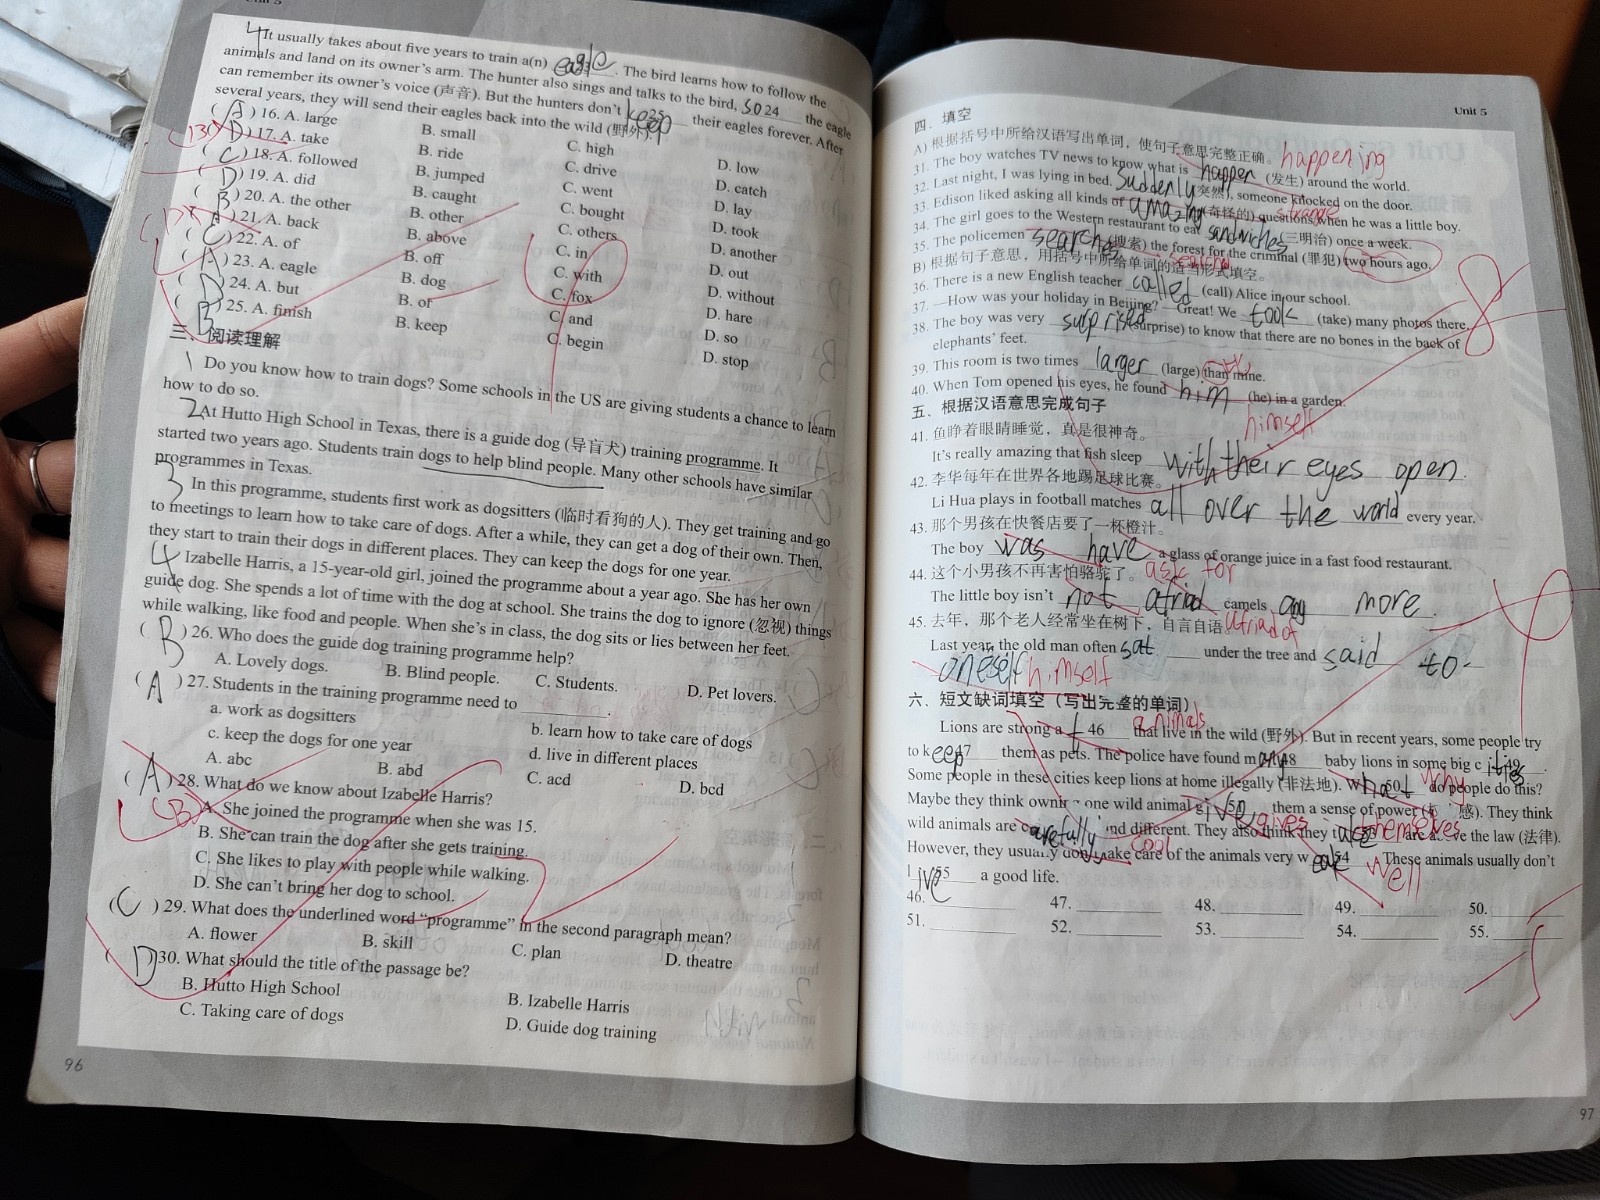 Unit 5
4 It usually takes about five years to train a(n) eagle. The bird learns how to follow the
animals and land on its owner's arm. The hunter also sings and talks to the bird, so 24 the eagle
can remember its owner's voice (声音). But the hunters don't keep 25 their eagles forever. After
several years, they will send their eagles back into the wild (野外).
( A ) 16. A. large B. small C. high D. low
(B) ( D ) 17. A. take B. ride C. drive D. catch
( C ) 18. A. followed B. jumped C. went D. lay
( D ) 19. A. did B. caught C. bought D. took
( B ) 20. A. the other B. other C. others D. another
( A ) 21. A. back B. above C. in D. out
( C ) 22. A. of B. off C. with D. without
( A ) 23. A. eagle B. dog C. fox D. hare
( D ) 24. A. but B. or C. and D. so
( B ) 25. A. finish B. keep C. begin D. stop
三、阅读理解
1 Do you know how to train dogs? Some schools in the US are giving students a chance to learn
how to do so.
2 At Hutto High School in Texas, there is a guide dog (导盲犬) training programme. It
started two years ago. Students train dogs to help blind people. Many other schools have similar
programmes in Texas.
3 In this programme, students first work as dogsitters (临时看狗的人). They get training and go
to meetings to learn how to take care of dogs. After a while, they can get a dog of their own. Then,
they start to train their dogs in different places. They can keep the dogs for one year.
4 Izabelle Harris, a 15-year-old girl, joined the programme about a year ago. She has her own
guide dog. She spends a lot of time with the dog at school. She trains the dog to ignore (忽视) things
while walking, like food and people. When she's in class, the dog sits or lies between her feet.
( B ) 26. Who does the guide dog training programme help?
A. Lovely dogs. B. Blind people. C. Students. D. Pet lovers.
( A ) 27. Students in the training programme need to ________.
a. work as dogsitters b. learn how to take care of dogs
c. keep the dogs for one year d. live in different places
A. abc B. abd C. acd D. bcd
( A ) 28. What do we know about Izabelle Harris?
(B) A. She joined the programme when she was 15.
B. She can train the dog after she gets training.
C. She likes to play with people while walking.
D. She can't bring her dog to school.
( C ) 29. What does the underlined word "programme" in the second paragraph mean?
A. flower B. skill C. plan D. theatre
( D ) 30. What should the title of the passage be?
B. Hutto High School B. Izabelle Harris
C. Taking care of dogs D. Guide dog training
96
Unit 5
四、填空
A) 根据括号中所给汉语写出单词，使句子意思完整正确。 happening
31. The boy watches TV news to know what is happer (发生) around the world.
32. Last night, I was lying in bed. Suddenly (突然), someone knocked on the door.
33. Edison liked asking all kinds of amazing (奇怪的) questions when he was a little boy. strange
34. The girl goes to the Western restaurant to eat sandwiches (三明治) once a week.
35. The policemen searches (搜索) the forest for the criminal (罪犯) two hours ago.
B) 根据句子意思，用括号中所给单词的适当形式填空。
36. There is a new English teacher called (call) Alice in our school.
37. —How was your holiday in Beijing? —Great! We took (take) many photos there.
38. The boy was very surprised (surprise) to know that there are no bones in the back of
elephants' feet.
39. This room is two times larger (large) than mine.
40. When Tom opened his eyes, he found him (he) in a garden.
himself
五、根据汉语意思完成句子
41. 鱼睁着眼睛睡觉，真是很神奇。
It's really amazing that fish sleep with their eyes open.
42. 李华每年在世界各地踢足球比赛。
Li Hua plays in football matches all over the world every year.
43. 那个男孩在快餐店要了一杯橙汁。
The boy was have a glass of orange juice in a fast food restaurant.
ask for
44. 这个小男孩不再害怕骆驼了。
The little boy isn't not afriad camels any more.
afriad of
45. 去年，那个老人经常坐在树下，自言自语
Last year, the old man often sat under the tree and said to
oneself himself
六、短文缺词填空（写出完整的单词）
Lions are strong a 46 animals that live in the wild (野外). But in recent years, some people try
to keep 47 them as pets. The police have found many 48 baby lions in some big cities 49.
Some people in these cities keep lions at home illegally (非法地). What 50 why do people do this?
Maybe they think owning one wild animal give gives them a sense of power 感). They think
wild animals are carefully cool and different. They also think they themselves are above the law (法律).
However, they usually don't take care of the animals very weak 54 well These animals usually don't
live 55 a good life.
46. ________ 47. ________ 48. ________ 49. ________ 50. ________
51. ________ 52. ________ 53. ________ 54. ________ 55. ________
97